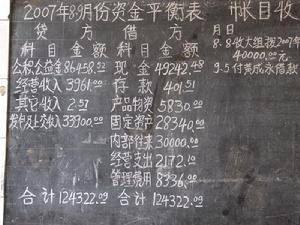 2007年8.9月份资金平衡表
贷方 借方
科目 金额 科目 金额
公积.公益金 86458.52 现金 49242.48
经营收入 3961.00 存款 401.51
其它收入 2.57 产品物资 5830.00
发包及上交收入 33900.00 固定资产 28340.00
内部往来 30000.00
经营支出 2172.10
管理费用 8336.00
合计 124322.09 合计 124322.09
帐目收
月日
8-8收大组拨2007年
40000.00元
9.5付黄成永借款